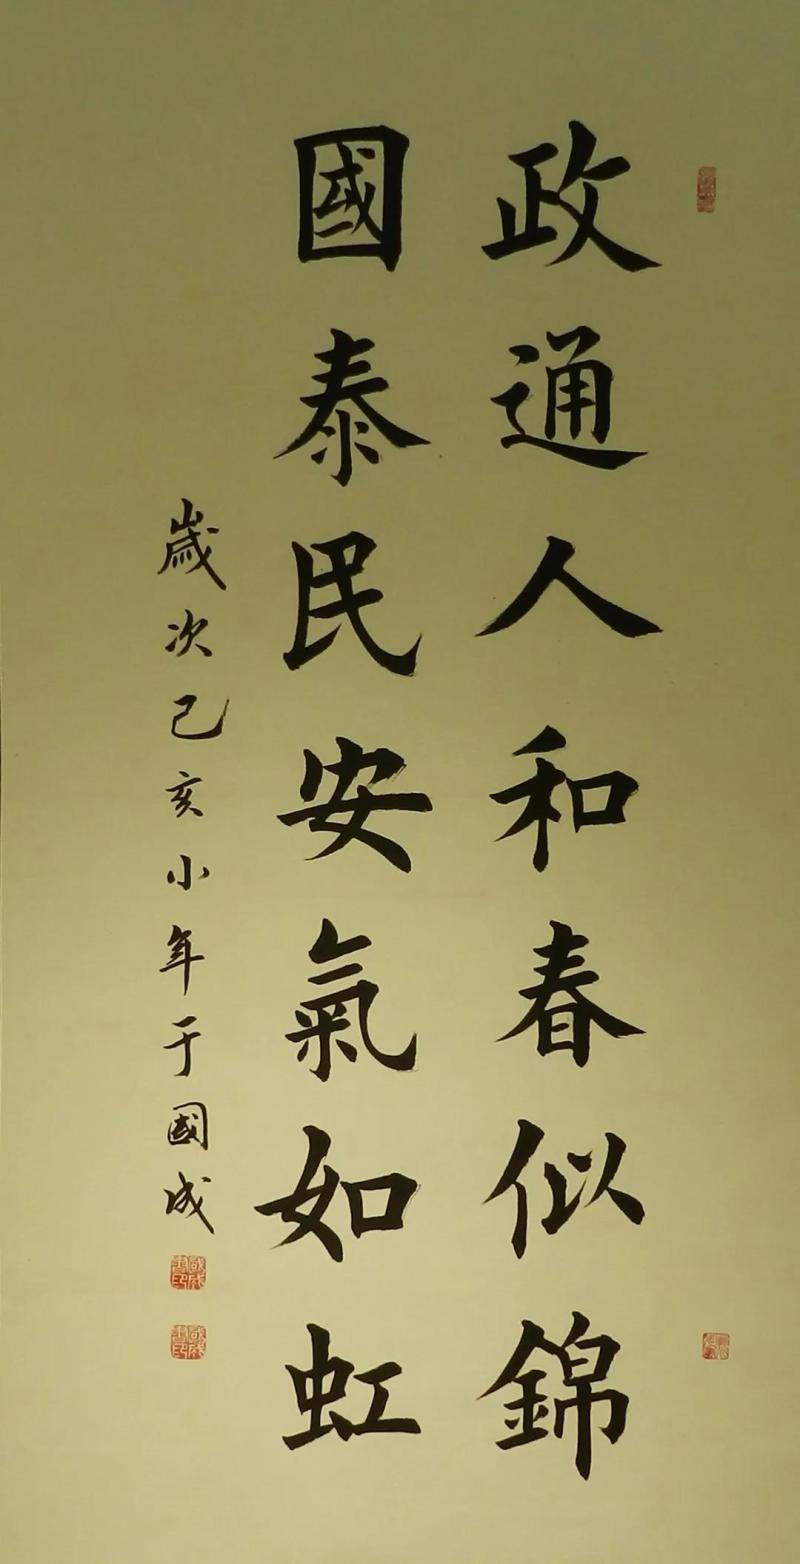 政通人和春似錦
國泰民安氣如虹
歲次己亥小年于國成